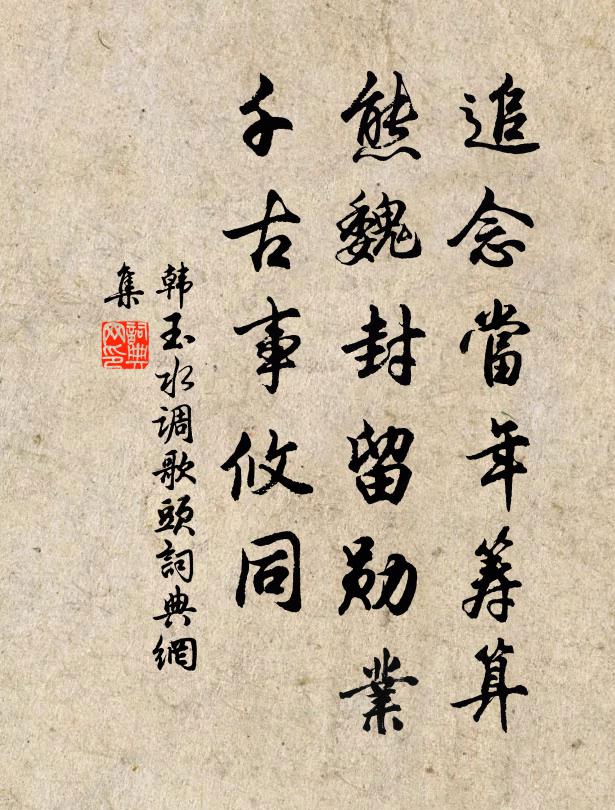 追念當年籌算
熊魏封留勋業
千古事攸同
韩玉水调歌頭詞典網
集
詞典網印